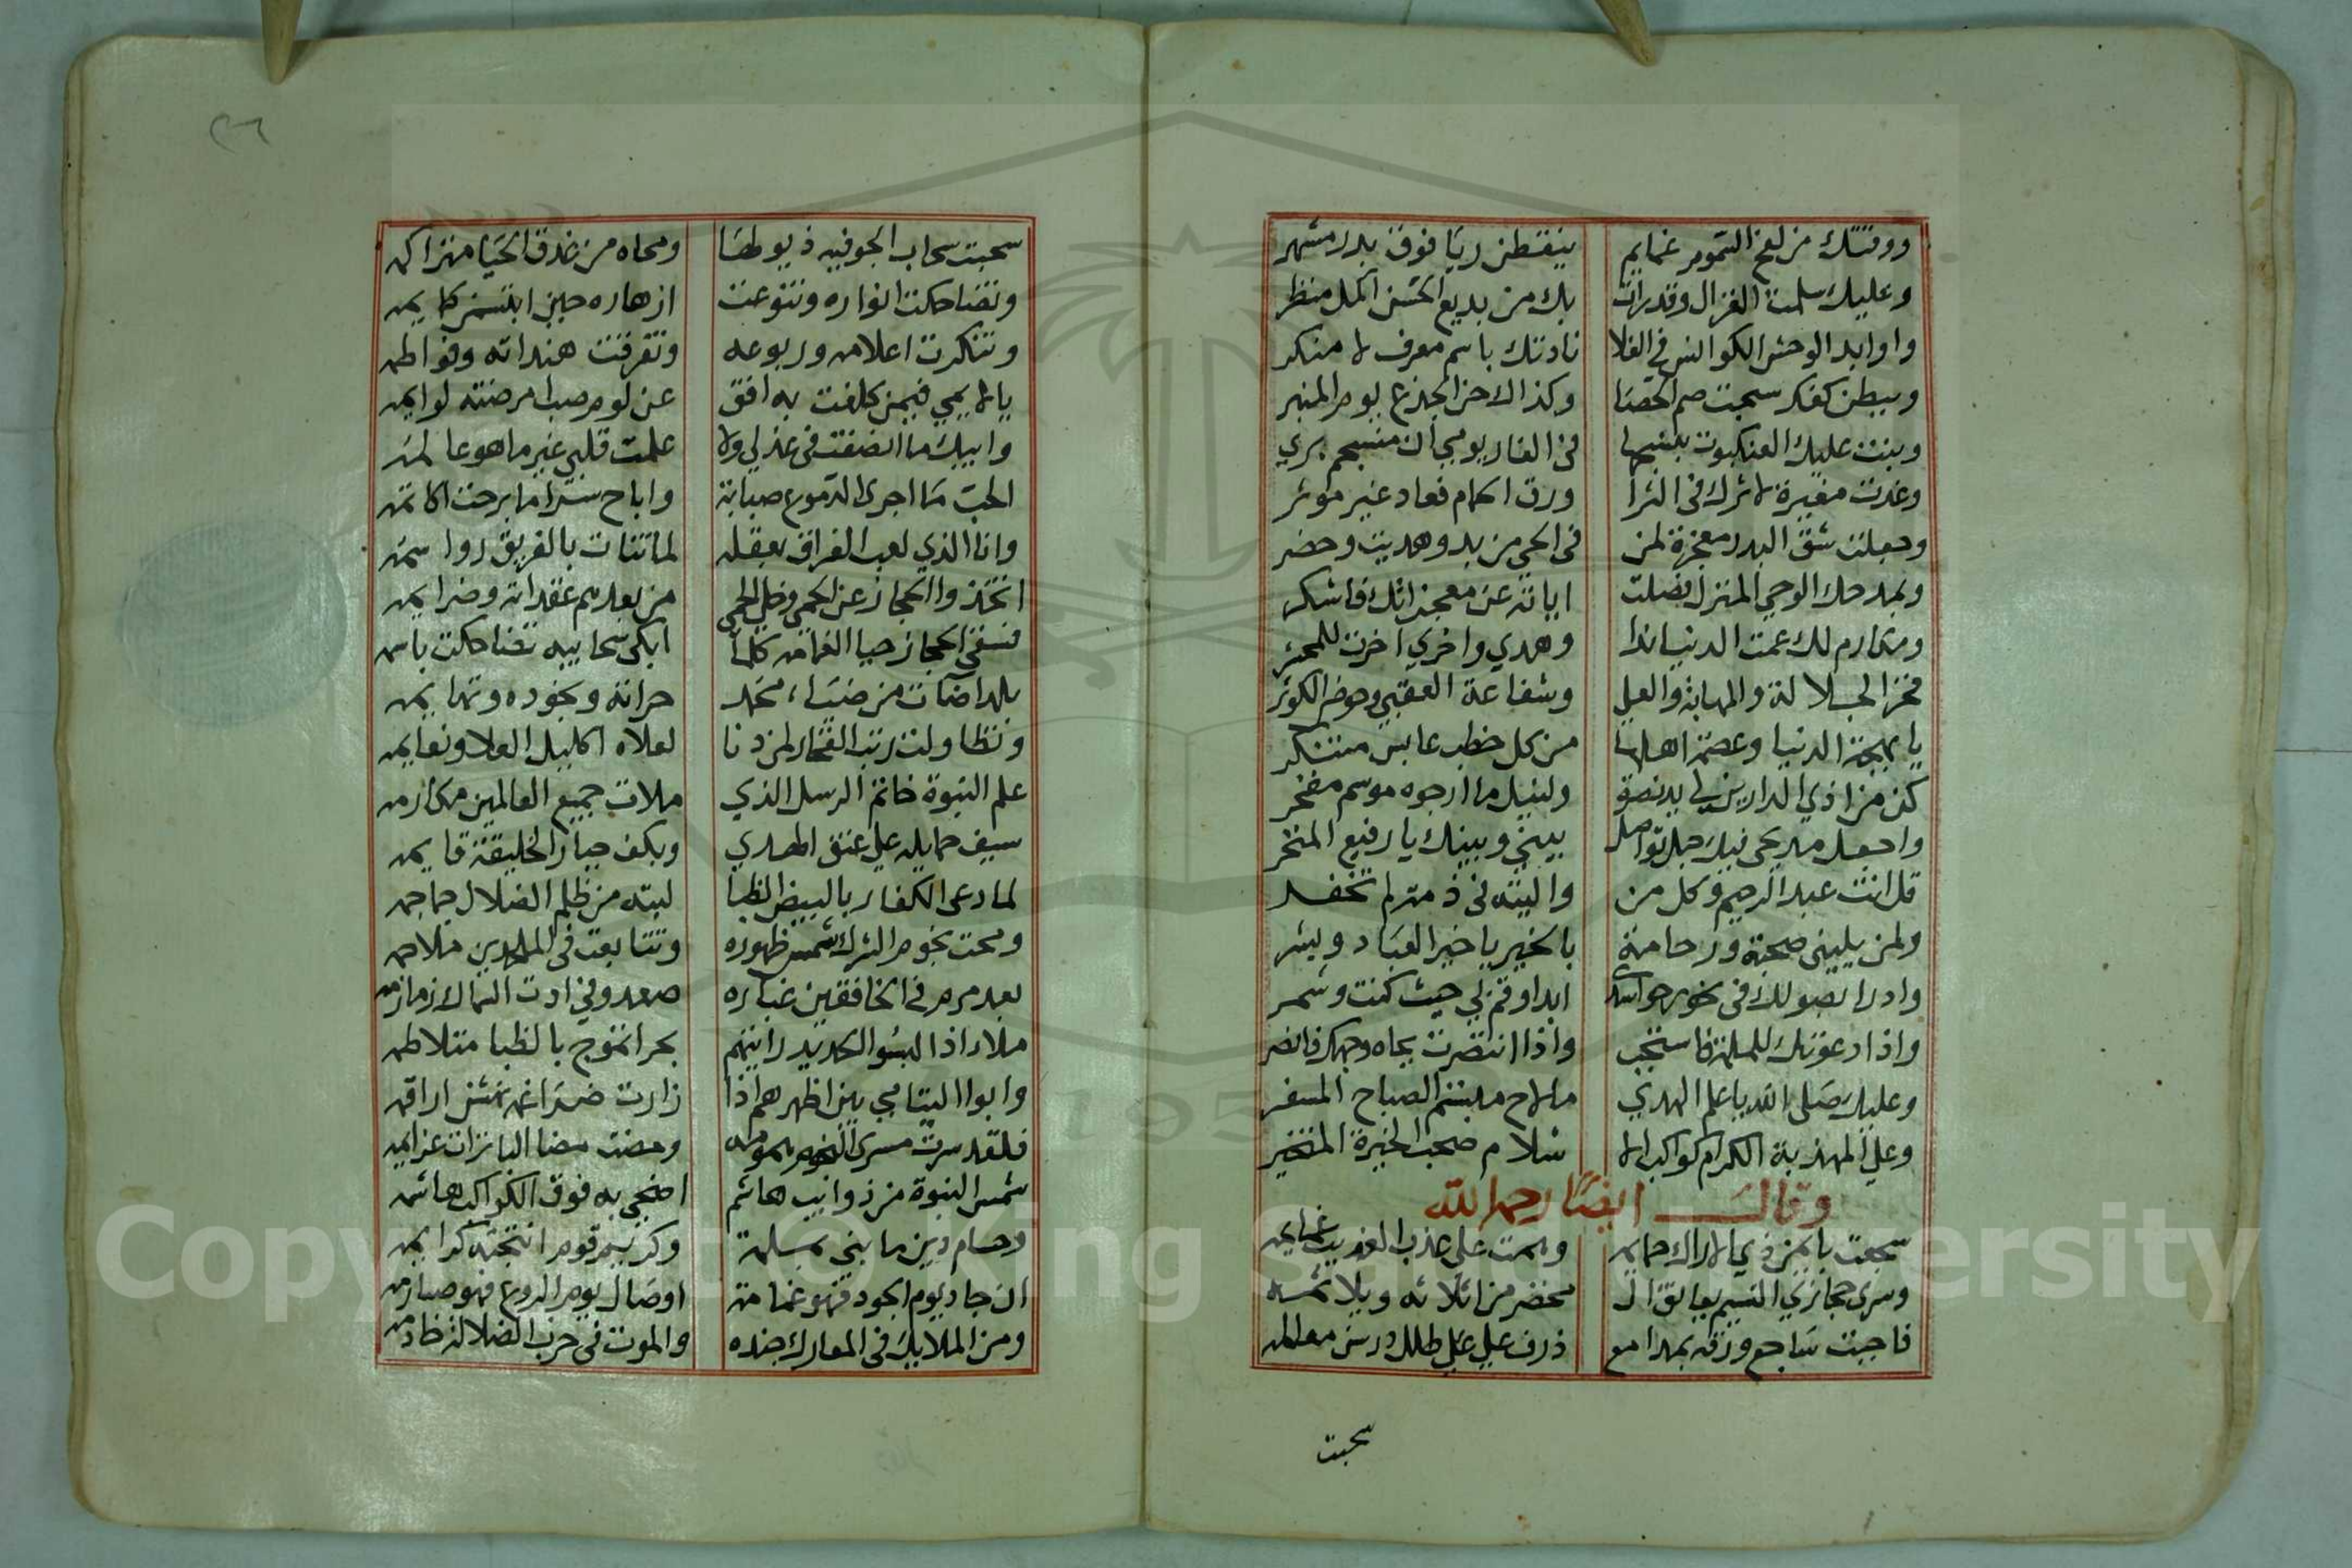 ووقتك من لفح السموم غمايم ينفطن ريا فوق بدر مشهر
وعليك سلمت الغزال وقد رات بك من بديع الحسن اكمل منظر
واوابد الوحش الكوانس في الفلا نادتك باسم معرف لا منكر
وببطن كفك سبحت صم الحصا وكذاك حن الجذع يوم المنبر
وبنت عليك العنكبوت بنسجها في الغار يومي ان منسجم بري
وغدت مغيرة لاثرك في الثرا ورق الحمام فعاد غير موثر
وجعلت شق البدر معجزة لمن في الحي من بدو هديت وحضر
وبمدحك الوحي المنزل فضلت اياته عن معجزاتك فاشكر
ومكارم لك عمت الدنيا ندا وهدي واخري اخرت للمحشر
فخر الجلالة والمهابة والعلي وشفاعة العقبي وحوض الكوثر
يا بهجة الدنيا وعصمة اهلها من كل خطب عابس متنكر
كن من اذي الدارين لي يد نصرة ولنيل ما ارجوه موسم مفخر
واجعل مديحي فيك حبل تواصل بيني وبينك يا رفيع المفخر
قل انت عبد الرحيم وكل من واليته في ذمتي لم تخفر
ولمن يليني صحبة ورحامة بالخير يا خير العباد وبشر
وادرا بصولك في نحور حواسدي ابدا وقم بي حيث كنت وشمر
واذا دعوتك للملمة فاستجب واذا انتصرت بجاه وجهك فانصر
وعليك صلى الله يا علم الهدي مالاح مبتسم الصباح المسفر
وعلي المهذبة الكرام كواكب الا سلام صحبك الخيرة المتخير
وقال ايضا رحمه الله
سجعت بايمن ذي الاراك حمايمه وهمت على عذب العذيب غمايمه
وسري حجازي النسيم بعابق ال مخضر من اثلاثه وبلا نمسه
فاجبت ساجع ورقه بمدامع ذرف علي طلل درسن معالمه
سحبت
سحبت سحاب الجو فيه ذيولها ومحاه من غدق الحيا متراكمه
وتضاحكت انواره وتنوعت ازهاره حين ابتسمن كمايمه
وتنكرت اعلامه وربوعه وتفرقت هنداته وفواطمه
يا لايمي فيمن كلفت به افق عن لوم صب امرضته لوايمه
وابيك ما انصفت في عذلي ولا علمت قلبي غير ما هو عالمه
الحب ما اجري الدموع صبابة واباح سرا ما برحت اكاتمه
وانا الذي لعب الفراق بعقله لما تنات بالفريق رواسمه
اتخذوا الحجاز عن الحمي وخلي الحمي من بعدهم عقداته وضرايمه
فسقي الحجاز حيا الغمامه كلما ابكي سحايبه تضاحكت باسمه
بلد اضات من ضياء محمد حراته ونجوده وتهايمه
وتطاولت رتب الفخار لمن دنا لعلاه اكليل العلا ونعايمه
علم النبوة خاتم الرسل الذي ملات جميع العالمين مكارمه
سيف حمايله علي عنق الهدي وبكف جبار الخليقة قايمه
لما دعى الكفار بالبيض الظبا لبته من ظلم الضلال جماجمه
ومحت نجوم الشرك شمس ظهوره وتتابعت في الملحدين ملاحمه
بعد مرم في الخافقين غباره صعد وفي ادت السماك زمازمه
ملاء اذا لبسوا الحديد رايتهم بحرا تموج بالظبا متلاطمه
وابوا اليتامي بين اظهرهم اذا زارت ضراغمه نمشن اراقمه
فلقد سرت مسري النجوم همومه ومضت مضا الباترات عزايمه
شمس النبوة من ذوايب هاشم اضحي به فوق الكواكب هاشمه
وحسام دين ما بني بمسلمة وكريم قوم انتجته كرايمه
ان جاد يوم الجود فهو غمامة اوصال يوم الروع فهو صبارمه
ومن الملايك في المعارك جنده والموت في حرب الضلالة خادمه